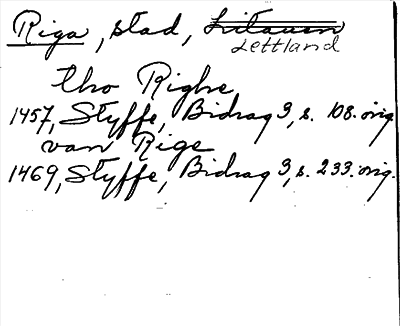 Riga, stad, Litauen
Lettland
tho Righe
1457, Styffe, Bidrag 3, s. 108. orig.
van Rige
1469, Styffe, Bidrag 3, s. 233. orig.